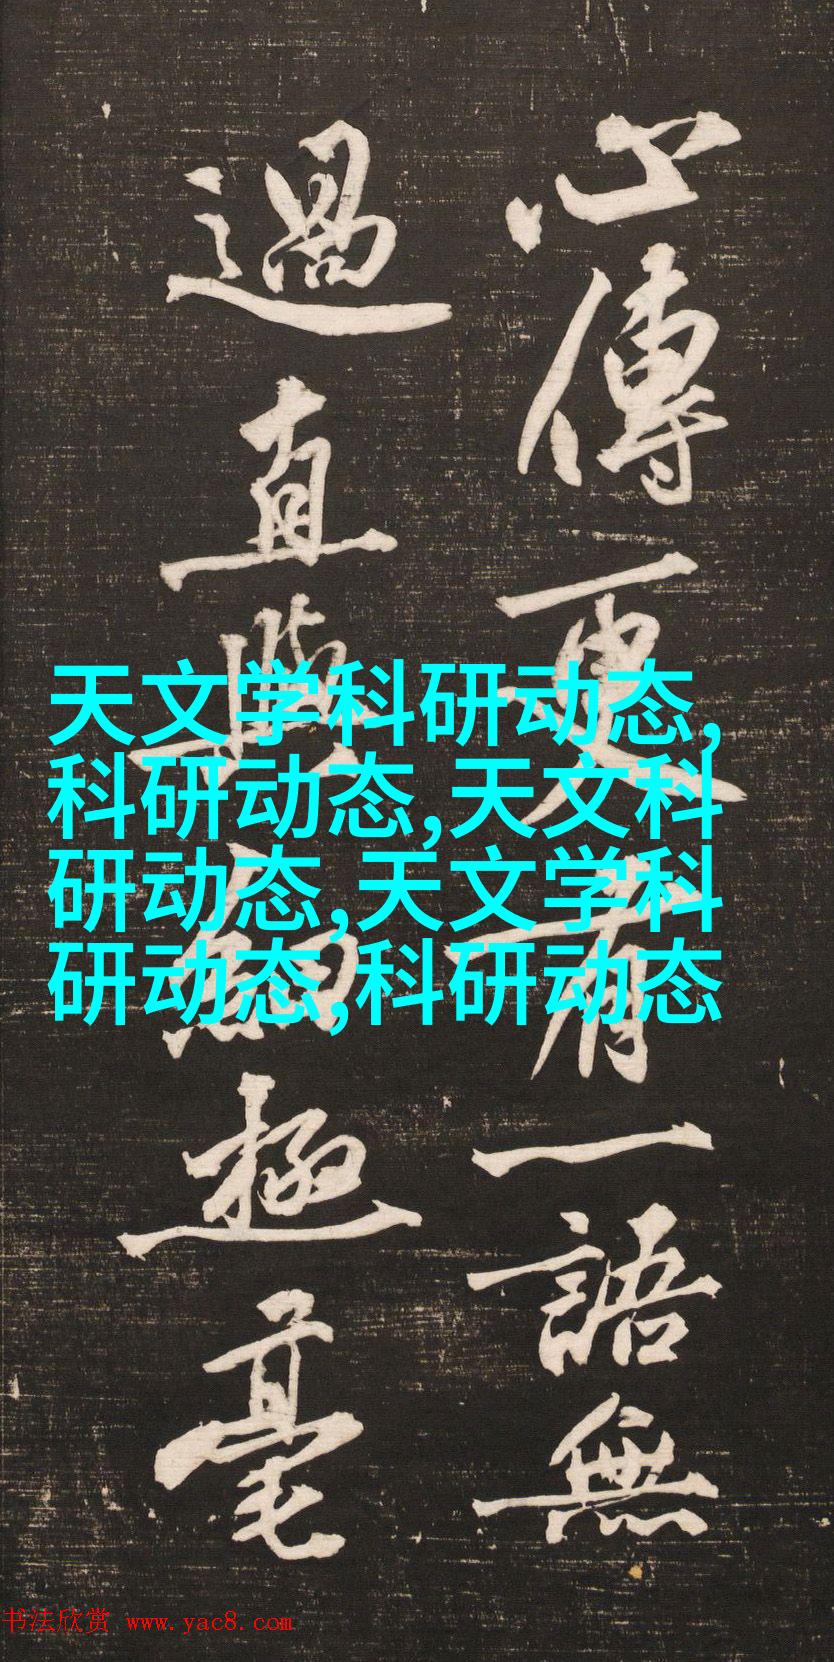 心傳更有一語無
過直與極毫
天文学科研动态,
科研动态,天文科
研动态,天文学科
研动态,科研动态
书法欣赏 www.yac8.com